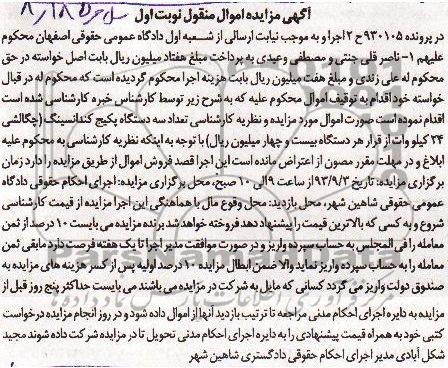 آگهی مزایده اموال منقول نوبت اول
در پرونده ۹۳۰۱۰۵ ح ۲ اجرا و به موجب نیابت ارسالی از شعبه اول دادگاه عمومی حقوقی اصفهان محکوم
علیهم ۱- ناصر قلی جنتی و مصطفی وعیدی به پرداخت مبلغ هفتاد میلیون ریال بابت اصل خواسته در حق
محکوم له علی زندی و مبلغ هفت میلیون ریال بابت هزینه اجرا محکوم گردیده است که محکوم له در قبال
خواسته خود اقدام به توقیف اموال محکوم علیه که به شرح زیر توسط کارشناس خبره کارشناسی شده است
اقدام نموده است صورت اموال مورد مزایده و نظریه کارشناسی تعداد سه دستگاه پکیج کندانسینگ (چگالشی
۲۴ کیلو وات از قرار هر دستگاه بیست و چهار میلیون ریال) با توجه به اینکه نظریه کارشناسی به محکوم علیه
ابلاغ و در مهلت مقرر مصون از اعتراض مانده است این اجرا قصد فروش اموال از طریق مزایده را دارد زمان
برگزاری مزایده: تاریخ ۹۳/۹/۳ از ساعت ۹ الی ۱۰ صبح، محل برگزاری مزایده: اجرای احکام حقوقی دادگاه
عمومی حقوقی شاهین شهر، محل بازدید: محل وقوع مال با هماهنگی این اجرا مزایده از قیمت کارشناسی
شروع و به کسی که بالاترین قیمت را پیشنهاد دهد فروخته خواهد شد برنده مزایده می بایست ۱۰ درصد از ثمن
معامله را فی المجلس به حساب سپرده واریز و در صورت موافقت مدیر اجرا تا یک هفته فرصت دارد مابقی ثمن
معامله را به حساب سپرده واریز نماید والا ضمن ابطال مزایده ۱۰ درصد اولیه پس از کسر هزینه های مزایده به
صندوق دولت واریز می گردد کسانی که مایل به شرکت در مزایده می باشند می بایست حداکثر پنج روز قبل از
مزایده به دایره اجرای احکام مدنی مراجعه تا ترتیب بازدید آنها از اموال داده شود و در روز انجام مزایده درخواست
کتبی خود به همراه قیمت پیشنهادی را به دایره اجرای احکام مدنی تحویل تا در مزایده شرکت داده شوند مجید
شکل آبادی مدیر اجرای احکام حقوقی دادگستری شاهین شهر